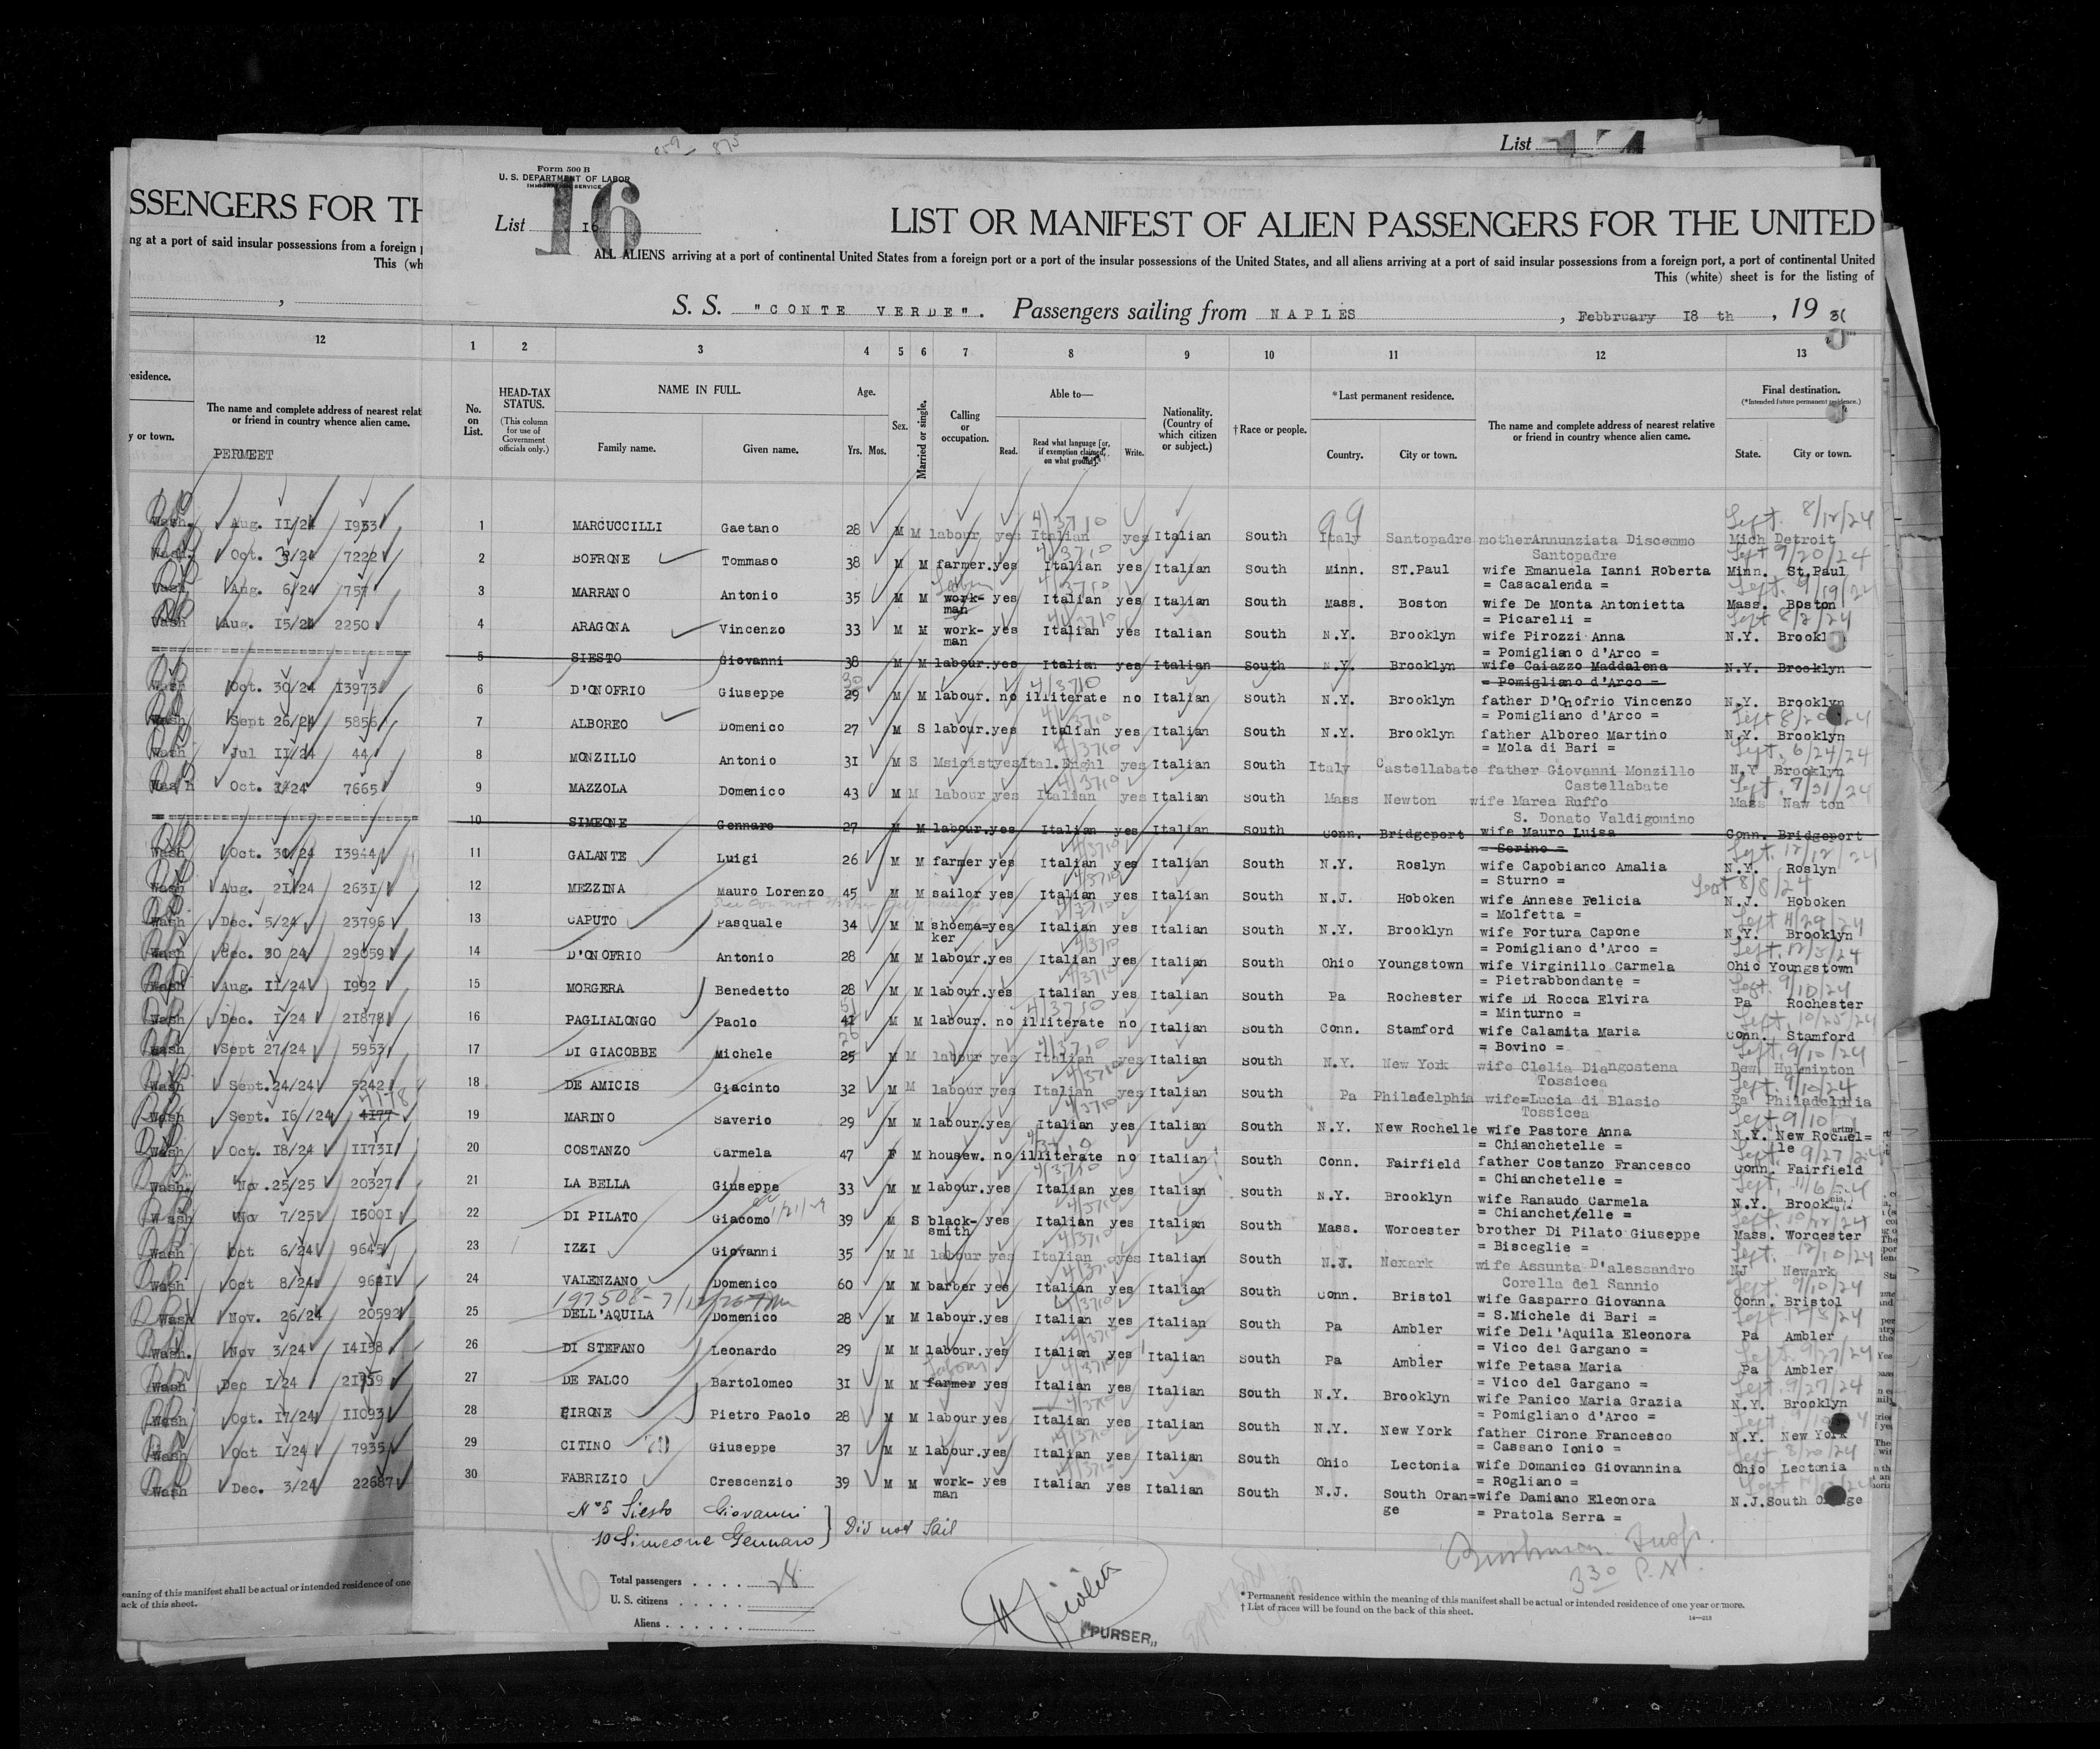 List
SSENGERS FOR TH
ng at a port of said insular possessions from a foreign
This (wh
12
esidence.
y or town.
The name and complete address of nearest relat
or friend in country whence alien came.
PERMEET
Wash. Aug. II/24 I953
Wash. Oct. 3/24 7222
Wash Aug. 6/24 757
Wash Aug. I5/24 2250
Wash Oct. 30/24 I3973
Wash Sept 26/24 5856
Wash Jul II/24 44
Wash Oct. 7665
Wash Oct. 30/24 I3944
Wash Aug. 2I/24 263I
Wash Dec. 5/24 23796
Wash Dec. 30 24 29059
Wash Aug. II/24 I992
Wash Dec. I/24 2I878
Wash Sept 27/24 5953
Wash Sept.24/24 5242
Wash Sept. I6/24 4177 4178
Wash Oct. I8/24 II73I
Wash. Nov.25/25 20327
Wash Nov 7/25 I500I
Wash Oct 6/24 9645
Wash Oct 8/24
Wash Nov. 26/24 20592
Wash. Nov 3/24 I4I38
Wash Dec I/24
Wash Oct. I7/24 II093
Wash Oct I/24 7935
Wash Dec. 3/24 22687
eaning of this manifest shall be actual or intended residence of one
ack of this sheet.
Form 500 B
U. S. DEPARTMENT OF LABOR
IMMIGRATION SERVICE
List I6
16
LIST OR MANIFEST OF ALIEN PASSENGERS FOR THE UNITED
ALL ALIENS arriving at a port of continental United States from a foreign port or a port of the insular possessions of the United States, and all aliens arriving at a port of said insular possessions from a foreign port, a port of continental United
This (white) sheet is for the listing of
S. S. "CONTE VERDE". Passengers sailing from NAPLES, Febbruary I8 th, 19
1 2 3 4 5 6 7 8 9 10 11 12 13
No. on List.
HEAD-TAX STATUS.
(This column for use of Government officials only.)
NAME IN FULL.
Family name. Given name.
Age.
Yrs. Mos.
Sex.
Married or single.
Calling or occupation.
Able to—
Read. Read what language [or, if exemption claimed, on what ground]. Write.
Nationality. (Country of which citizen or subject.)
†Race or people.
*Last permanent residence.
Country. City or town.
The name and complete address of nearest relative
or friend in country whence alien came.
Final destination.
(*Intended future permanent residence.)
State. City or town.
99 Sept. 8/12/24
1 MARCUCCILLI Gaetano 28 M M labour yes Italian yes Italian South Italy Santopadre motherAnnunziata Discemmo Mich Detroit
Santopadre Sept 9/20/24
2 BOFRONE Tommaso 38 M M farmer.yes Italian yes Italian South Minn. ST.Paul wife Emanuela Ianni Roberta Minn. St.Paul
= Casacalenda = Sept. 9/19/24
3 MARRANO Antonio 35 M M work-man yes Italian yes Italian South Mass. Boston wife De Monta Antonietta Mass. Boston
= Picarelli = Sept 8/2/24
4 ARAGONA Vincenzo 33 M M work-man yes Italian yes Italian South N.Y. Brooklyn wife Pirozzi Anna N.Y. Brookl
= Pomigliano d'Arco =
5 SIESTO Giovanni 38 M M labour.yes Italian yes Italian South N.Y. Brooklyn wife Caiazzo Maddalena N.Y. Brooklyn
= Pomigliano d'Arco =
6 D'ONOFRIO Giuseppe 29 30 M M labour. no illiterate no Italian South N.Y. Brooklyn father D'Onofrio Vincenzo N.Y. Brooklyn
= Pomigliano d'Arco =
7 ALBOREO Domenico 27 M S labour.yes Italian yes Italian South N.Y. Brooklyn father Alboreo Martino N.Y. Brooklyn
= Mola di Bari = Sept. 6/24/24
8 MONZILLO Antonio 3I M S Msicistyes Ital.Enghl yes Italian South Italy Castellabate father Giovanni Monzillo N.Y Brooklyn
Castellabate Sept. 7/31/24
9 MAZZOLA Domenico 43 M M labour yes Italian yes Italian South Mass Newton wife Marea Ruffo Mass Naw ton
S. Donato Valdigomino
10 SIMEONE Gennaro 27 M M labour.yes Italian yes Italian South Conn. Bridgeport wife Mauro Luisa Conn. Bridgeport
= Serino = Sept. 12/12/24
11 GALANTE Luigi 26 M M farmer yes Italian yes Italian South N.Y. Roslyn wife Capobianco Amalia N.Y. Roslyn
= Sturno = Sept 8/8/24
12 MEZZINA Mauro Lorenzo 45 M M sailor yes Italian yes Italian South N.J. Hoboken wife Annese Felicia N.J. Hoboken
= Molfetta = Sept 4/29/24
13 CAPUTO Pasquale 34 M M shoema=ker yes Italian yes Italian South N.Y. Brooklyn wife Fortura Capone N.Y. Brooklyn
= Pomigliano d'Arco = Sept. 12/3/24
14 D'ONOFRIO Antonio 28 M M labour.yes Italian yes Italian South Ohio Youngstown wife Virginillo Carmela Ohio Youngstown
= Pietrabbondante = Sept. 9/10/24
15 MORGERA Benedetto 28 M M labour.yes Italian yes Italian South Pa Rochester wife Di Rocca Elvira Pa Rochester
= Minturno = Sept. 10/25/24
16 PAGLIALONGO Paolo 41 51 M M labour. no illiterate no Italian South Conn. Stamford wife Calamita Maria Conn. Stamford
= Bovino = Sept. 9/10/24
17 DI GIACOBBE Michele 25 26 M M labour yes Italian yes Italian South N.Y. New York wife Clelia Diangostena Dew Hulminton
Tossicea Sept. 9/10/24
18 DE AMICIS Giacinto 32 M M labour yes Italian yes Italian South Pa Philadelphia wife=Lucia di Blasio Pa Philadelphia
Tossicea Sept. 9/10
19 MARINO Saverio 29 M M labour.yes Italian yes Italian South N.Y. New Rochelle wife Pastore Anna N.Y. New Rochel=le
= Chianchetelle = Sept. 9/27/24
20 COSTANZO Carmela 47 F M housew. no illiterate no Italian South Conn. Fairfield father Costanzo Francesco Conn. Fairfield
= Chianchetelle = Sept. 11/6/24
21 LA BELLA Giuseppe 33 M M labour.yes Italian yes Italian South N.Y. Brooklyn wife Ranaudo Carmela N.Y. Brook
= Chianchetelle = Sept. 10/22/24
22 DI PILATO Giacomo 39 M S black-smith yes Italian yes Italian South Mass. Worcester brother Di Pilato Giuseppe Mass. Worcester
= Bisceglie = Sept. 12/10/24
23 IZZI Giovanni 35 M M labour yes Italian yes Italian South N.J. Nexark wife Assunta D'alessandro NJ Newark
Corella del Sannio Sept. 9/10/24
24 VALENZANO Domenico 60 M M barber yes Italian yes Italian South Conn. Bristol wife Gasparro Giovanna Conn. Bristol
= S.Michele di Bari = Sept. 12/3/24
25 DELL'AQUILA Domenico 28 M M labour.yes Italian yes Italian South Pa Ambler wife Dell'Aquila Eleonora Pa Ambler
= Vico del Gargano = Sept. 9/27/24
26 DI STEFANO Leonardo 29 M M labour.yes Italian yes Italian South Pa Ambler wife Petasa Maria Pa Ambler
= Vico del Gargano = Sept. 9/27/24
27 DE FALCO Bartolomeo 3I M M farmer yes Italian yes Italian South N.Y. Brooklyn wife Panico Maria Grazia N.Y. Brooklyn
= Pomigliano d'Arco =
28 CIRONE Pietro Paolo 28 M M labour yes Italian yes Italian South N.Y. New York father Cirone Francesco N.Y. New York
= Cassano Ionio = Sept 8/20/24
29 CITINO Giuseppe 37 M M labour.yes Italian yes Italian South Ohio Lectonia wife Domanico Giovannina Ohio Lectonia
= Rogliano =
30 FABRIZIO Crescenzio 39 M M work-man yes Italian yes Italian South N.J. South Oran=ge wife Damiano Eleonora N.J.South O ge
= Pratola Serra =
N° 5 Siesto Giovanni
10 Simeone Gennaro } Did not Sail
Total passengers 28
U. S. citizens
Aliens
"PURSER"
Insp.
3 30 P.M.
* Permanent residence within the meaning of this manifest shall be actual or intended residence of one year or more.
† List of races will be found on the back of this sheet.
14—213